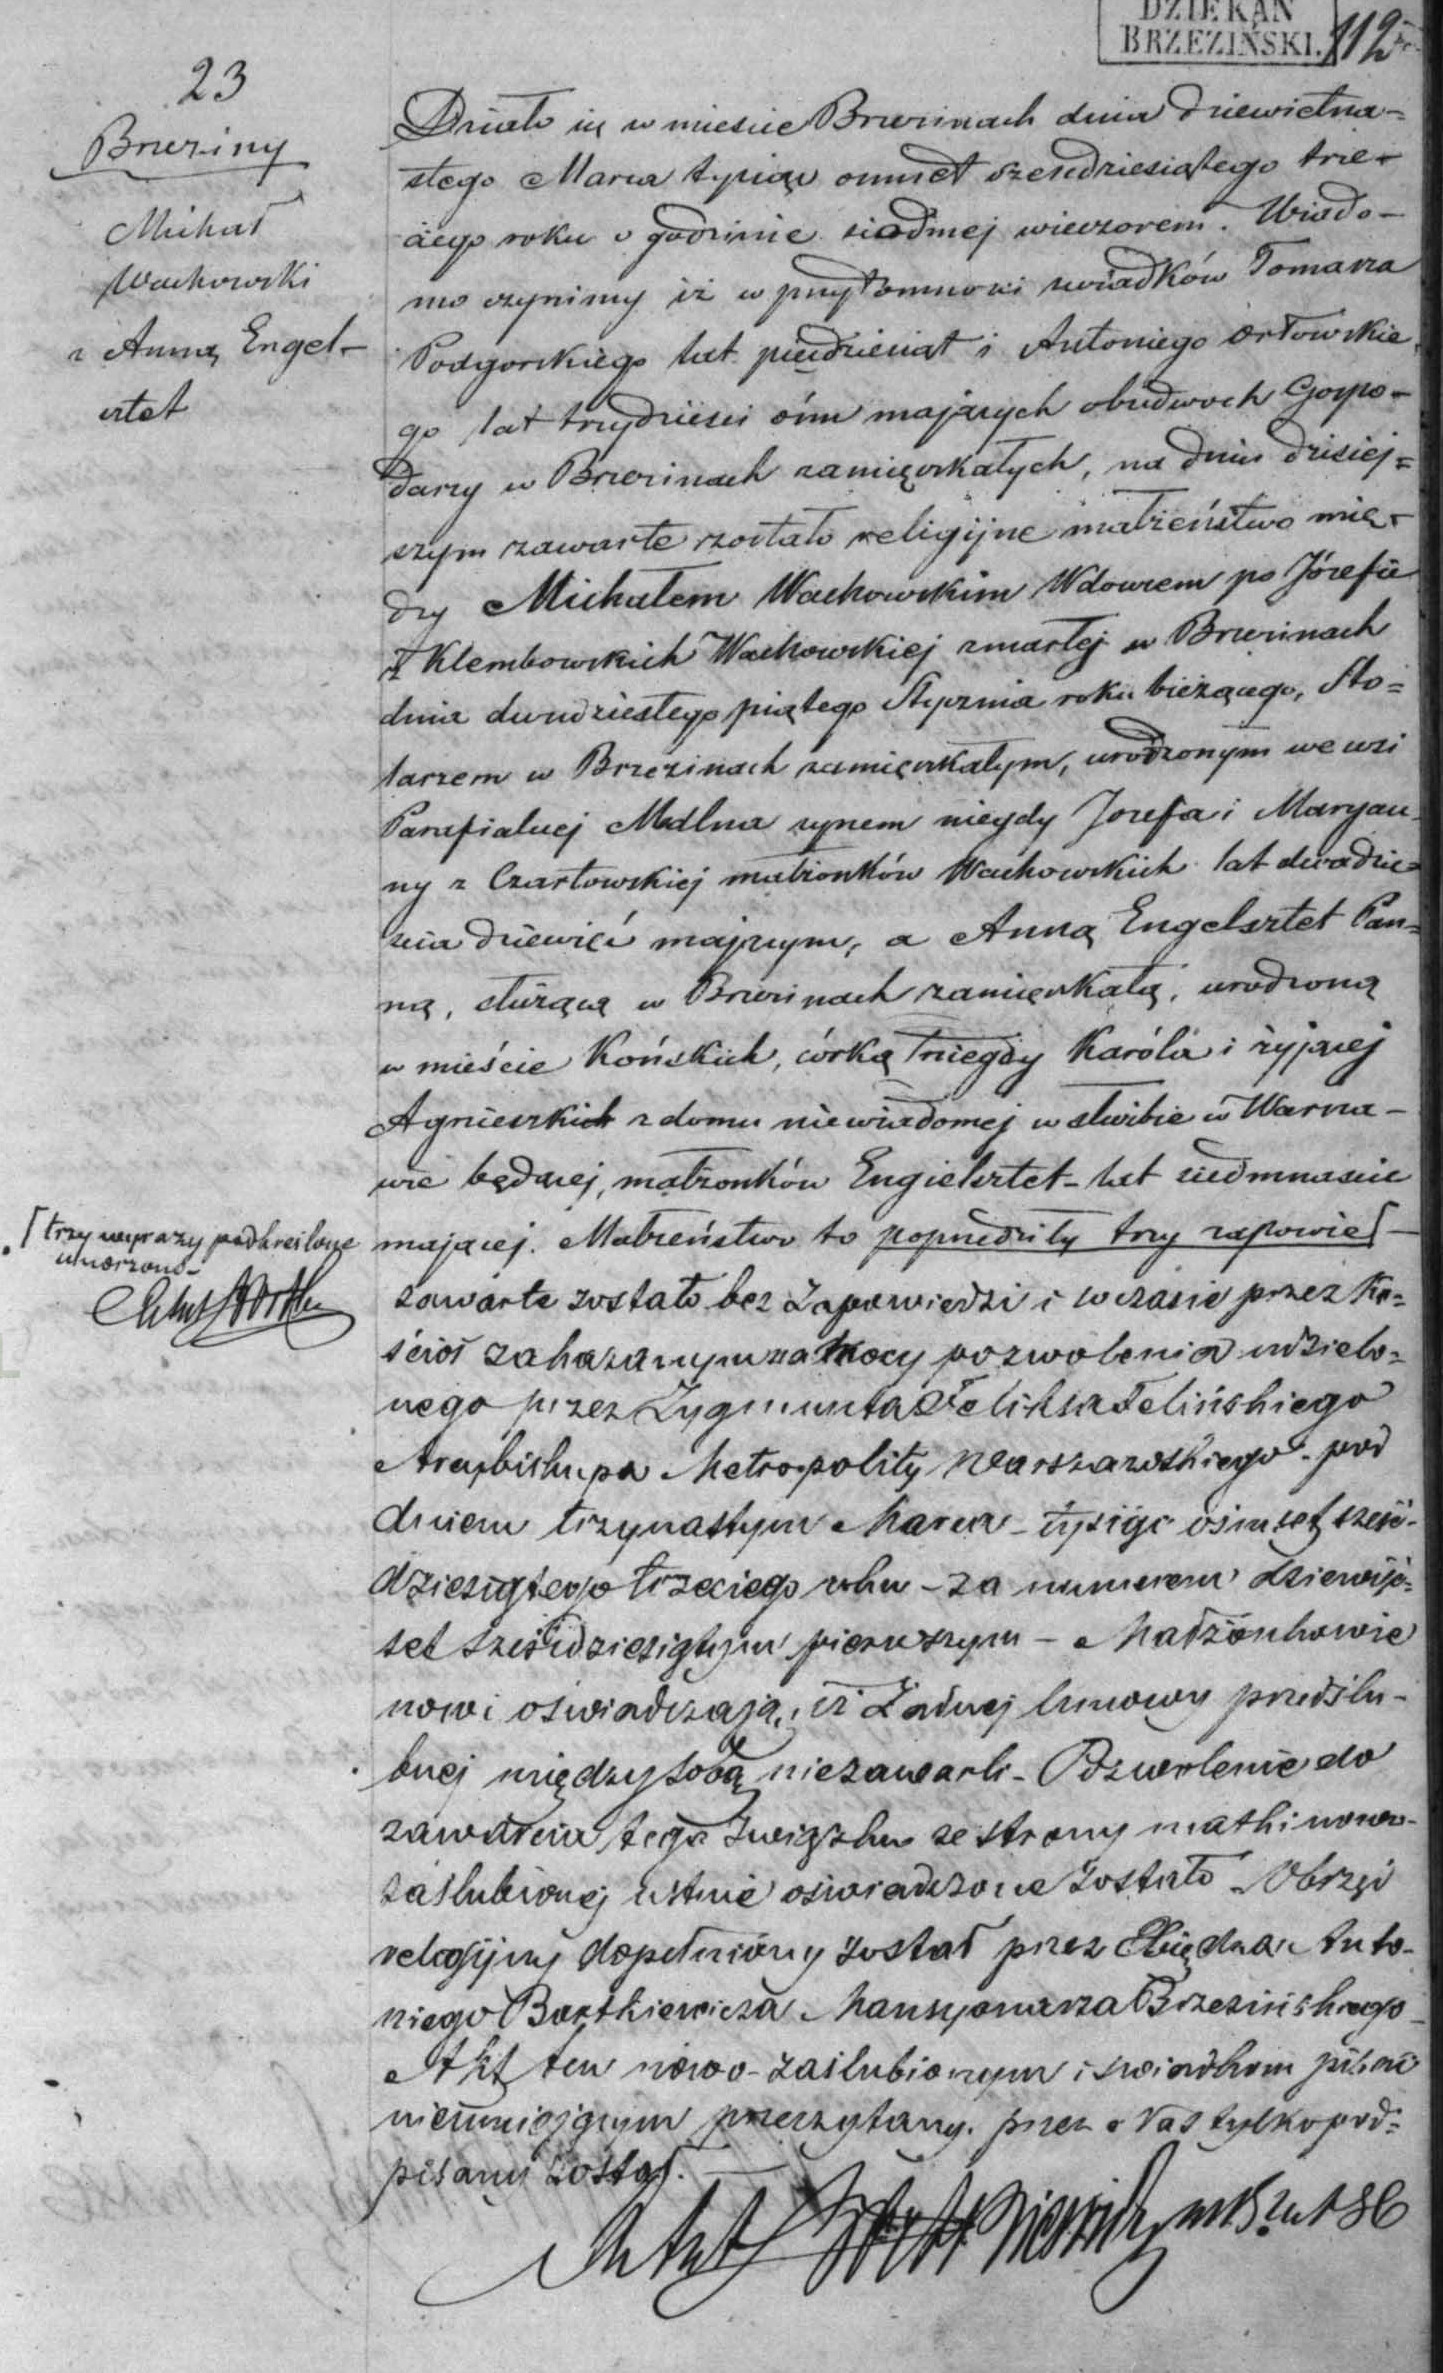 DZIEKAN
BRZEZIŃSKI.
112
23
Brzeziny
Michał
Wachowski
z Anną Engel-
sztet
Działo się w mieście Brzezinach dnia dziewietna=
stego Marca tysiąc ośmset sześcdziesiątego trze-
ciego roku o godzinie siodmej wieczorem. Wiado-
mo czynimy iż w przytomności swiadków Tomasza
Podgorskiego lat piędziesiąt i Antoniego Orłowskie
go lat trzydzieści ośm mających obudwoch Gospo-
darzy w Brzezinach zamięszkałych, na dniu dzisiej=
szym zawarte zostało religijne małżeństwo mię-
dzy Michałem Wachowskim Wdowcem po Józefie
z Klembowskich Wachowskiej zmarłej w Brzezinach
dnia dwudziestego piątego Stycznia roku bieżącego, Sto=
larzem w Brzezinach zamięszkałym, urodzonym we wsi
Parafialnej Mdlna synem niegdy Jozefa i Maryan
ny z Czartowskiej małżonków Wachowskich lat dwadzie
scia dziewięć mającym, a Anną Engelsztet Pan=
ną, służącą w Brzezinach zamięszkałą, urodzoną
w mieście Końskich, córką niegdy Karóla i żyjącej
Agnieszki z domu niewiadomej w służbie w Warsza-
wie będącej, małżonków Engielsztet - lat siedmnascie
mającej. Małżeństwo to poprzedziły trzy zapowied
[trzy wyrazy podkreślone
umorzono-
zawarte zostało bez Zapowiedzi i w czasie przez Ko=
ściół zakazanym na mocy pozwolenia udzielo=
nego przez Zygmunta Feliksa Felińskiego
Arcybiskupa Metropolity Warszawskiego - pod
dniem trzynastym Marca - tysiąc ośmset sześć-
dziesiątego trzeciego roku - za numerem dziewięć=
set sześćdziesiątym pierwszym - Małżonkowie
nowi oświadczają, iż Żadnej Umowy przedślu-
bnej między sobą niezawarli - Pozwolenie do
zawarcia tego Związku ze strony matki nowo-
zaślubionej ustnie oświadczone zostało - Obrzęd
religijny dopełniony został przez Xiędza Anto-
niego Bartkiewicza Mansyonarza Brzezińskiego -
Akt ten nowo-zaślubionym i swiadkom pisać
nieumiejącym przeczytany. przez Nas tylko pod=
pisany został. -